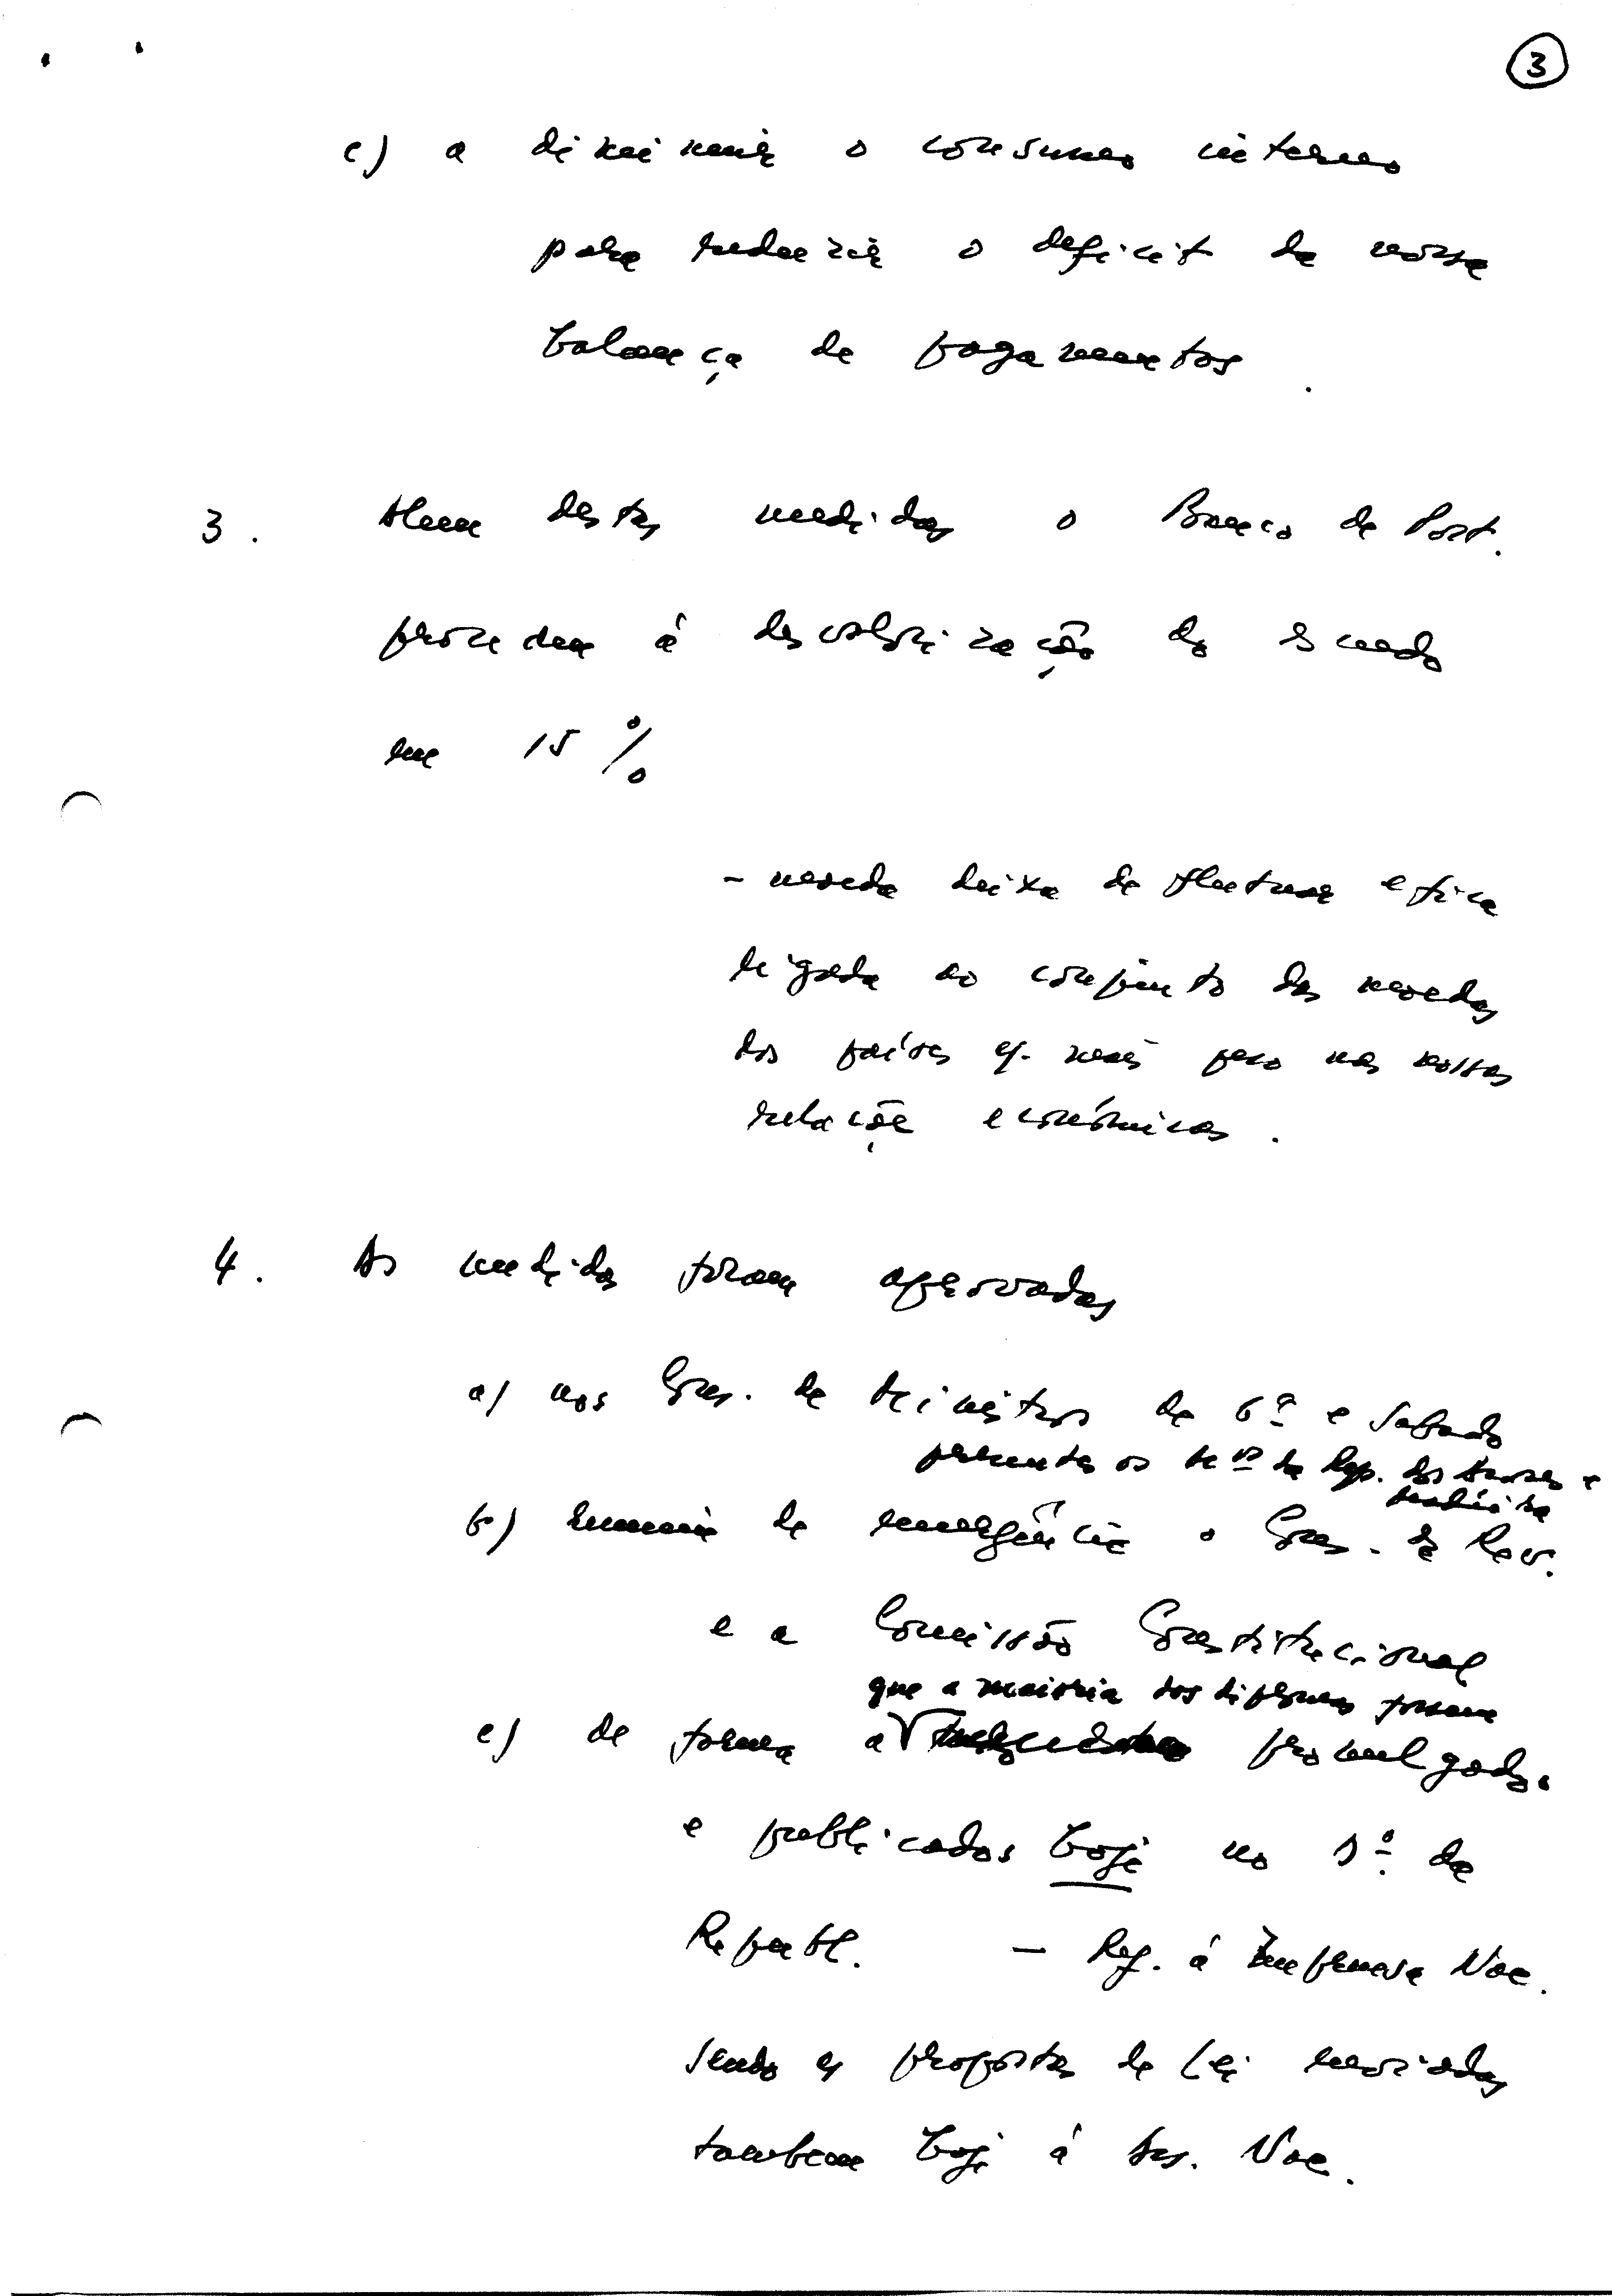 3
c) a diminuir o consumo interno
para reduzir o deficit da nossa
balança de pagamentos.
3. Alem destas medidas o Banco de Port.
procedeu á desvalorização do Escudo
em 15 %
- moeda deixa de flutuar e fica
ligada ao conjunto das moedas
dos países q. mais peso nas nossas
relações económicas.
4. As medidas foram aprovadas
a) nos Cons. de Ministros de 6ª e Sabado
presentes os Mºs da Rep. dos Açores e
Madeira
b) reuniu de emergência o Cons. da Rev.
e a Comissão Constitucional
que a maioria dos diplomas fossem
c) de forma a promulgados
e publicados hoje no Dº da
Republ. - Ref. á Imprensa Nac.
sendo as propostas de Lei enviadas
tambem hoje á Ass. Nac.